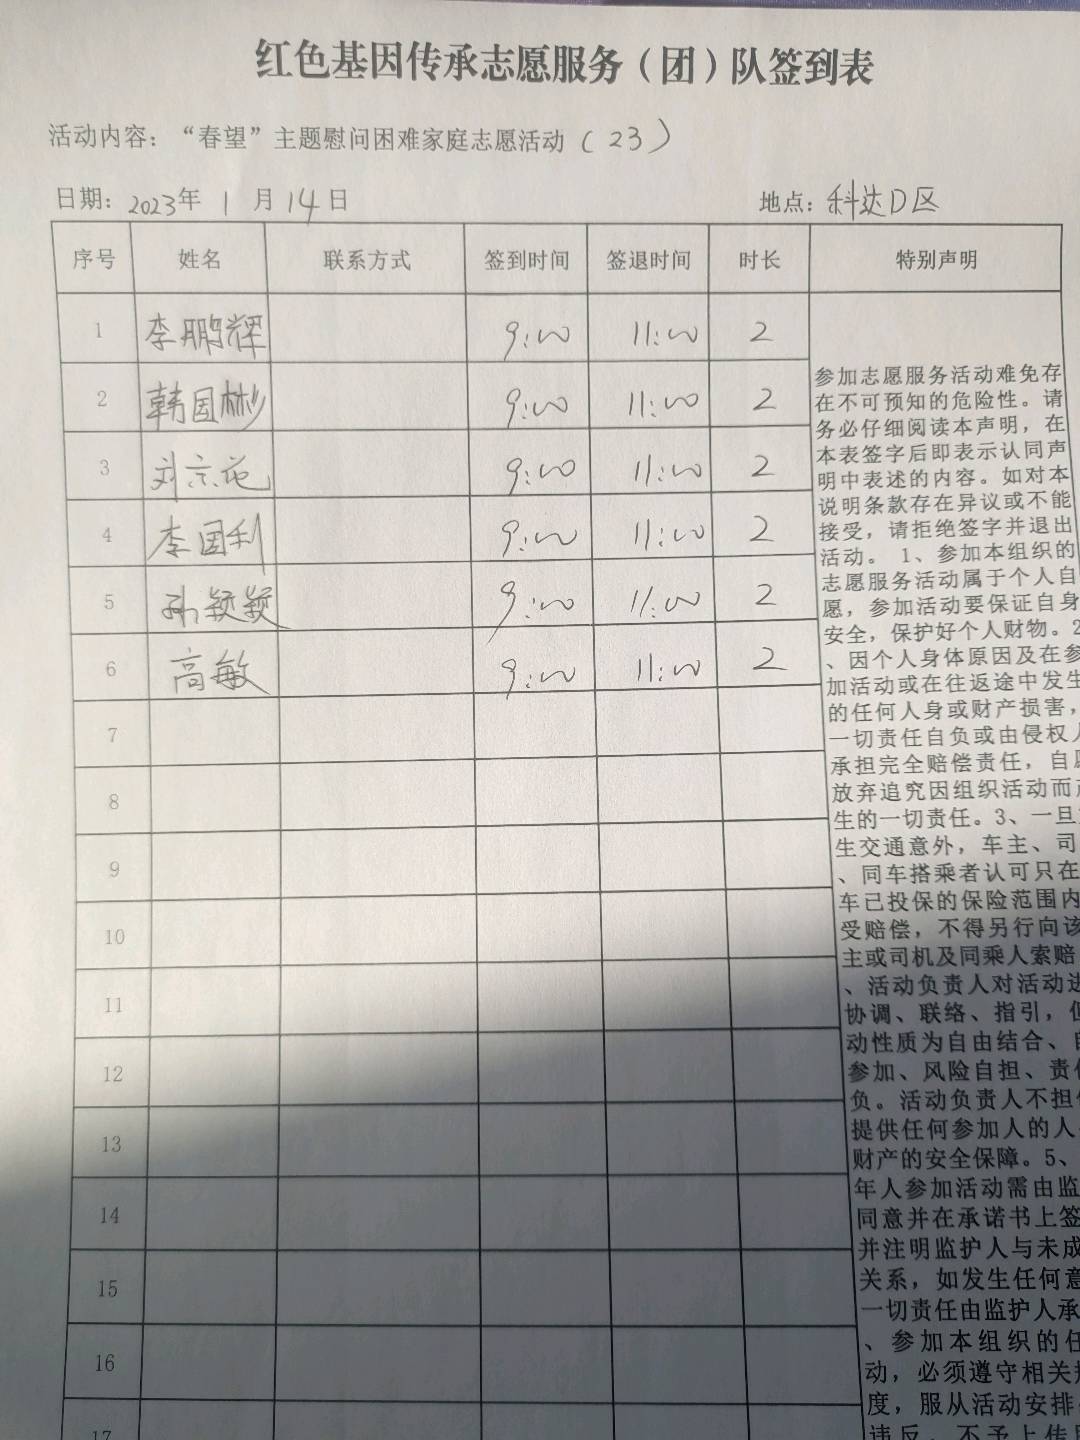 红色基因传承志愿服务（团）队签到表
活动内容：“春望”主题慰问困难家庭志愿活动（23）
日期：2023年 1 月 14 日 地点：科达D区
序号 姓名 联系方式 签到时间 签退时间 时长 特别声明
1 李鹏辉 9:00 11:00 2
2 韩国彬 9:00 11:00 2
3 刘宗范 9:00 11:00 2
4 李国利 9:00 11:00 2
5 孙颖颖 9:00 11:00 2
6 高敏 9:00 11:00 2
7
8
9
10
11
12
13
14
15
16
17
参加志愿服务活动难免存
在不可预知的危险性。请
务必仔细阅读本声明，在
本表签字后即表示认同声
明中表述的内容。如对本
说明条款存在异议或不能
接受，请拒绝签字并退出
活动。1、参加本组织的
志愿服务活动属于个人自
愿，参加活动要保证自身
安全，保护好个人财物。2
、因个人身体原因及在参
加活动或在往返途中发生
的任何人身或财产损害，
一切责任自负或由侵权人
承担完全赔偿责任，自愿
放弃追究因组织活动而产
生的一切责任。3、一旦
生交通意外，车主、司
、同车搭乘者认可只在
车已投保的保险范围内
受赔偿，不得另行向该
主或司机及同乘人索赔
、活动负责人对活动进
协调、联络、指引，但
动性质为自由结合、自
参加、风险自担、责任
负。活动负责人不担
提供任何参加人的人
财产的安全保障。5、
年人参加活动需由监
同意并在承诺书上签
并注明监护人与未成
关系，如发生任何意
一切责任由监护人承
、参加本组织的任
动，必须遵守相关规
度，服从活动安排
违反，不予上传